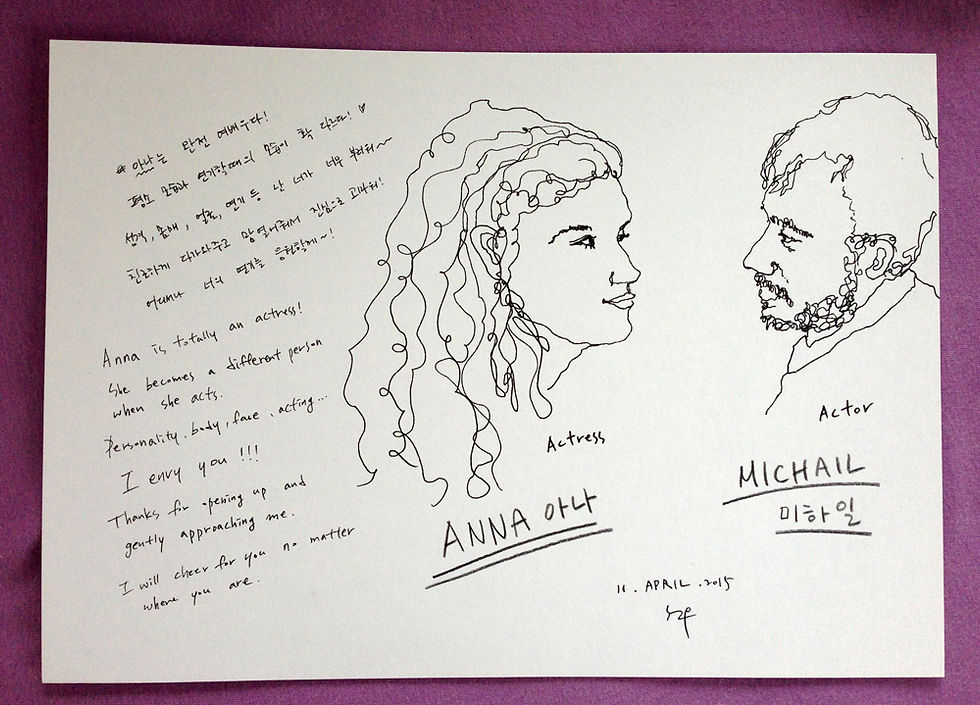 * 안나는 완전 여배우다!
평소 모습과 연기할때의 모습이 확 다르다! ♡
성격, 몸매, 얼굴, 연기 등 난 너가 너무 부러워~
친근하게 다가와주고 맘 열어줘서 진심으로 고마워!
어디에서나 너의 연기를 응원할께~!
Anna is totally an actress!
She becomes a different person
when she acts.
Personality, body, face, acting...
I envy you !!!
Thanks for opening up and
gently approaching me.
I will cheer for you no matter
where you are.
Actress
ANNA 아나
Actor
MICHAIL
미하일
11. APRIL. 2015